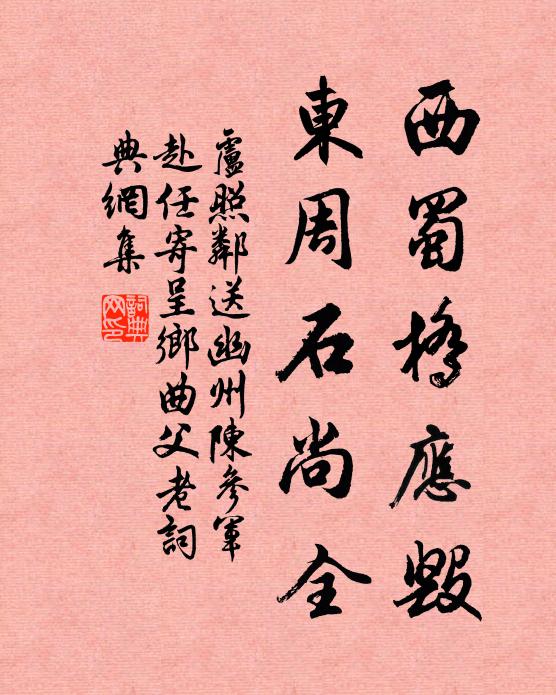 西蜀橋應毀
東周石尚全
盧照鄰送幽州陳參軍
赴任寄呈鄉曲父老詞
典網集
詞典网印